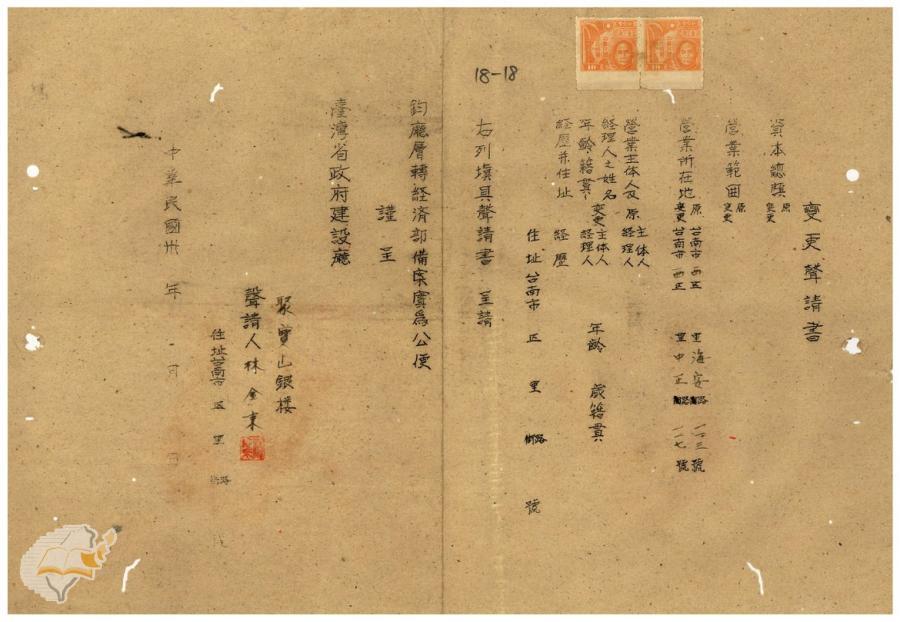 變更聲請書
資本總額 原 變更
營業範囲 原 變更
營業所在地 原 台南市 西区 里 海安 路 一二三號
變更 台南市 西区 里 中正 路 一一七號
營業主体人及經理人之姓名年齡籍貫經歷並住址
原 主体人 經理人
變更 主体人 經理人 年齡 歲籍貫
經歷
住址台南市 区 里 街路 號
右列填具聲請書 呈請
鈞廳層轉経済部備案實為公便
謹呈
臺灣省政府建設廳
聚寶山銀楼
聲請人 林金東
住址台南市 区 里 街路
中華民國卅 年 一月 日
18-18